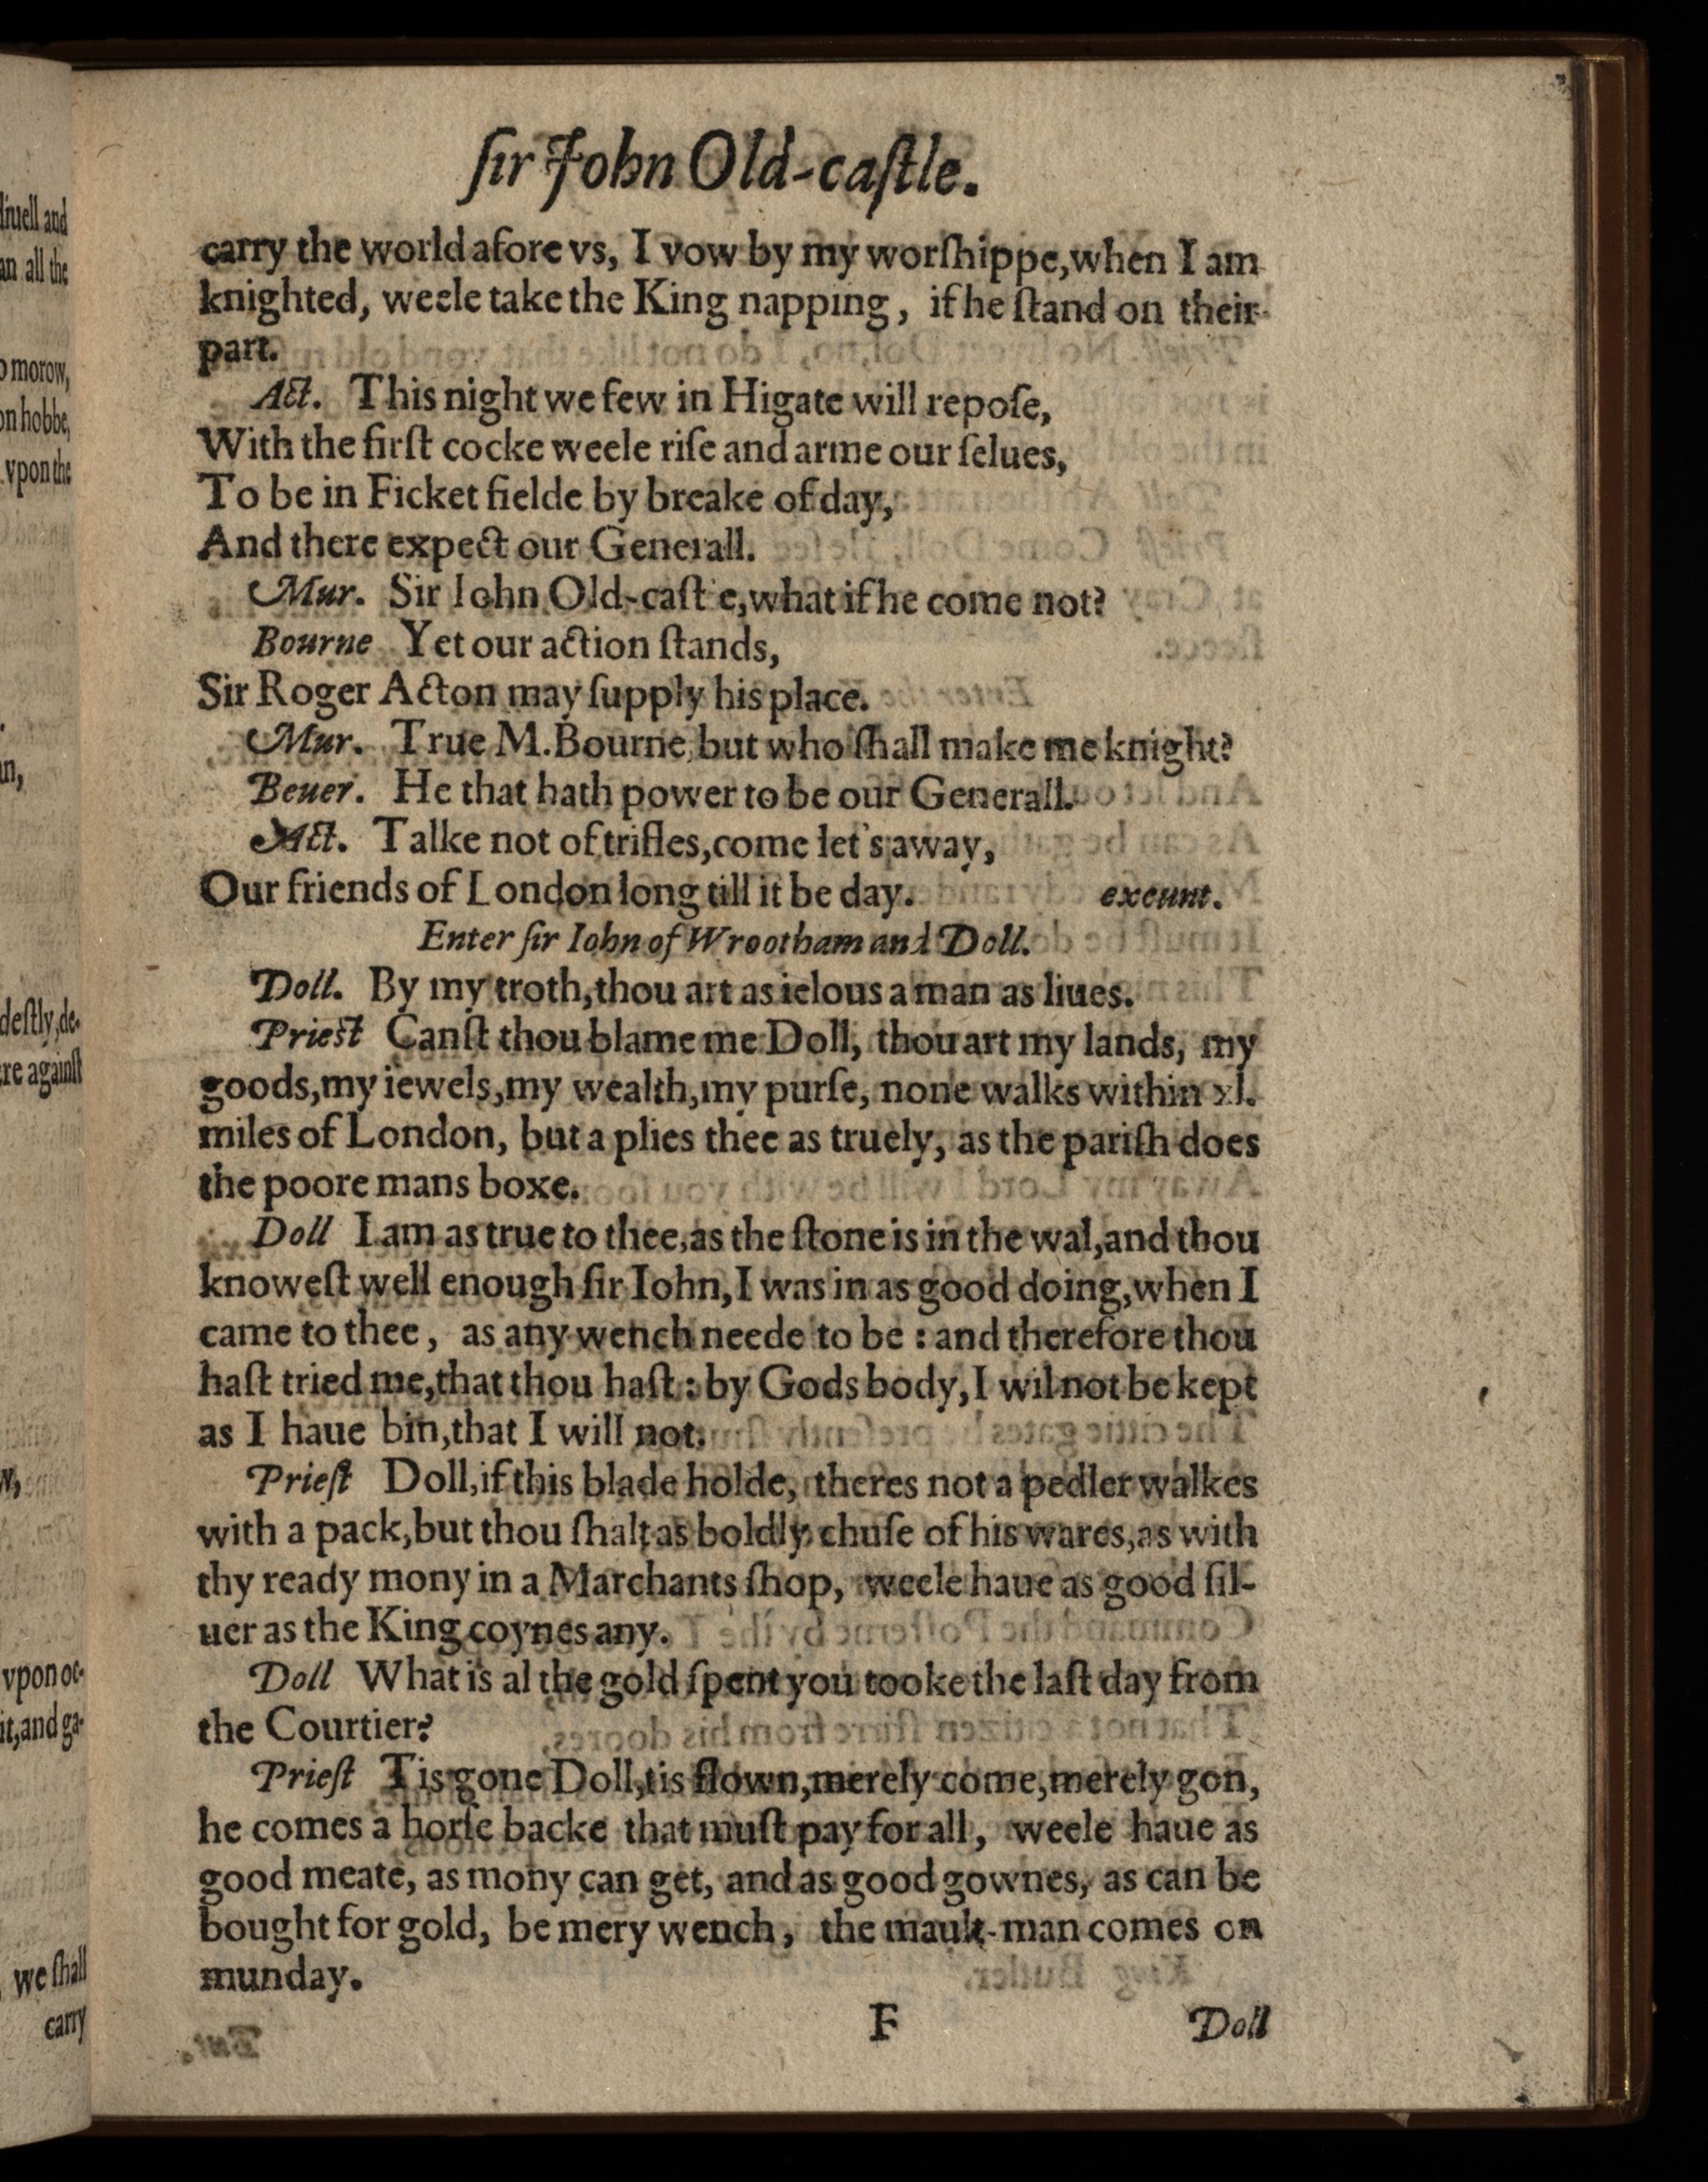 ſir John Old-caſtle.
carry the world afore vs, I vow by my worſhippe,when I am
knighted, weele take the King napping, if he ſtand on their
part.
Act. This night we few in Higate will repoſe,
With the firſt cocke weele riſe and arme our ſelues,
To be in Ficket fielde by breake of day,
And there expect our Generall.
Mur. Sir Iohn Old-caſt e,what if he come not?
Bourne Yet our action ſtands,
Sir Roger Acton may ſupply his place.
Mur. True M.Bourne, but who ſhall make me knight?
Beuer. He that hath power to be our Generall.
Act. Talke not of trifles,come let's away,
Our friends of London long till it be day. exeunt.
Enter ſir Iohn of Wrootham and Doll.
Doll. By my troth,thou art as ielous a man as liues.
Prieſt Canſt thou blame me Doll, thou art my lands, my
goods,my iewels,my wealth,my purſe, none walks within xl.
miles of London, but a plies thee as truely, as the pariſh does
the poore mans boxe.
Doll I am as true to thee,as the ſtone is in the wal,and thou
knoweſt well enough ſir Iohn,I was in as good doing,when I
came to thee, as any wench neede to be : and therefore thou
haſt tried me,that thou haſt : by Gods body,I wil not be kept
as I haue bin,that I will not.
Prieſt Doll,if this blade holde, theres not a pedler walkes
with a pack,but thou ſhalt as boldly chuſe of his wares,as with
thy ready mony in a Marchants ſhop, weele haue as good ſil-
uer as the King coynes any.
Doll What is al the gold ſpent you tooke the laſt day from
the Courtier?
Prieſt Tis gone Doll,tis flown,merely come,merely gon,
he comes a horſe backe that muſt pay for all, weele haue as
good meate, as mony can get, and as good gownes, as can be
bought for gold, be mery wench, the mault-man comes on
munday.
F Doll